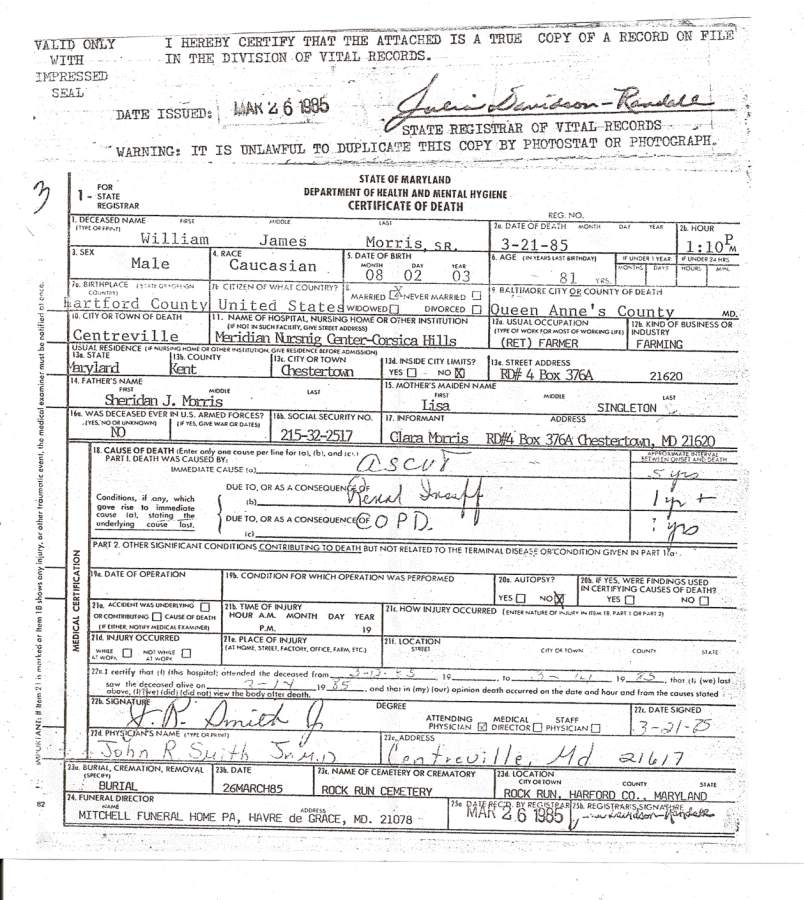 VALID ONLY
WITH
IMPRESSED
SEAL
I HEREBY CERTIFY THAT THE ATTACHED IS A TRUE COPY OF A RECORD ON FILE
IN THE DIVISION OF VITAL RECORDS.
DATE ISSUED: MAR 26 1985
Julia Davidson-Randall
STATE REGISTRAR OF VITAL RECORDS
WARNING: IT IS UNLAWFUL TO DUPLICATE THIS COPY BY PHOTOSTAT OR PHOTOGRAPH.
3
1 - FOR STATE REGISTRAR
STATE OF MARYLAND
DEPARTMENT OF HEALTH AND MENTAL HYGIENE
CERTIFICATE OF DEATH
REG. NO.
1. DECEASED NAME (TYPE OR PRINT) FIRST MIDDLE LAST
William James Morris, SR.
2a. DATE OF DEATH MONTH DAY YEAR
3-21-85
2b. HOUR
1:10 P M
3. SEX
Male
4. RACE
Caucasian
5. DATE OF BIRTH
MONTH DAY YEAR
08 02 03
6. AGE (IN YEARS LAST BIRTHDAY)
81 YRS.
IF UNDER 1 YEAR
MONTHS DAYS
IF UNDER 24 HRS
HOURS MIN.
7a. BIRTHPLACE (STATE OR FOREIGN COUNTRY)
Hartford County
7b. CITIZEN OF WHAT COUNTRY?
United States
8. MARRIED X NEVER MARRIED
WIDOWED DIVORCED
9. BALTIMORE CITY OR COUNTY OF DEATH
Queen Anne's County MD.
10. CITY OR TOWN OF DEATH
Centreville
11. NAME OF HOSPITAL, NURSING HOME OR OTHER INSTITUTION
(IF NOT IN SUCH FACILITY, GIVE STREET ADDRESS)
Meridian Nursnig Center-Corsica Hills
12a. USUAL OCCUPATION
(TYPE OF WORK FOR MOST OF WORKING LIFE)
(RET) FARMER
12b. KIND OF BUSINESS OR INDUSTRY
FARMING
USUAL RESIDENCE (IF NURSING HOME OR OTHER INSTITUTION, GIVE RESIDENCE BEFORE ADMISSION)
13a. STATE
Maryland
13b. COUNTY
Kent
13c. CITY OR TOWN
Chestertown
13d. INSIDE CITY LIMITS?
YES NO X
13e. STREET ADDRESS
RD# 4 Box 376A 21620
14. FATHER'S NAME
FIRST MIDDLE LAST
Sheridan J. Morris
15. MOTHER'S MAIDEN NAME
FIRST MIDDLE LAST
Lisa SINGLETON
16a. WAS DECEASED EVER IN U.S. ARMED FORCES?
(YES, NO OR UNKNOWN) (IF YES, GIVE WAR OR DATES)
NO
16b. SOCIAL SECURITY NO.
215-32-2517
17. INFORMANT ADDRESS
Clara Morris RD#4 Box 376A Chestertown, MD 21620
18. CAUSE OF DEATH (Enter only one cause per line for (a), (b), and (c))
PART I. DEATH WAS CAUSED BY:
IMMEDIATE CAUSE (a) ASCVD
APPROXIMATE INTERVAL BETWEEN ONSET AND DEATH
5 yrs
Conditions, if any, which gave rise to immediate cause (a), stating the underlying cause last.
DUE TO, OR AS A CONSEQUENCE OF
(b) Renal Insuff
1 yr +
DUE TO, OR AS A CONSEQUENCE OF
(c) COPD.
? yrs
PART 2. OTHER SIGNIFICANT CONDITIONS CONTRIBUTING TO DEATH BUT NOT RELATED TO THE TERMINAL DISEASE OR CONDITION GIVEN IN PART 1(a)
MEDICAL CERTIFICATION
19a. DATE OF OPERATION
19b. CONDITION FOR WHICH OPERATION WAS PERFORMED
20a. AUTOPSY?
YES NO X
20b. IF YES, WERE FINDINGS USED IN CERTIFYING CAUSES OF DEATH?
YES NO
21a. ACCIDENT WAS UNDERLYING
OR CONTRIBUTING CAUSE OF DEATH
(IF EITHER, NOTIFY MEDICAL EXAMINER)
21b. TIME OF INJURY
HOUR A.M. MONTH DAY YEAR
P.M. 19
21c. HOW INJURY OCCURRED (ENTER NATURE OF INJURY IN ITEM 18, PART 1 OR PART 2)
21d. INJURY OCCURRED
WHILE AT WORK NOT WHILE AT WORK
21e. PLACE OF INJURY
(AT HOME, STREET, FACTORY, OFFICE, FARM, ETC.)
21f. LOCATION
STREET CITY OR TOWN COUNTY STATE
22a. I certify that (I) (this hospital) attended the deceased from 19 , to 19 85, that (I) (we) last
saw the deceased alive on 19 85, and that in (my) (our) opinion death occurred on the date and hour and from the causes stated
above, (I) (we) (did) (did not) view the body after death.
22b. SIGNATURE
J. R. Smith Jr
DEGREE
ATTENDING PHYSICIAN MEDICAL DIRECTOR STAFF PHYSICIAN
22c. DATE SIGNED
3-21-85
22d. PHYSICIAN'S NAME (TYPE OR PRINT)
John R Smith Jr MD
22e. ADDRESS
Centreville, Md 21617
23a. BURIAL, CREMATION, REMOVAL
(SPECIFY)
BURIAL
23b. DATE
26MARCH85
23c. NAME OF CEMETERY OR CREMATORY
ROCK RUN CEMETERY
23d. LOCATION
CITY OR TOWN COUNTY STATE
ROCK RUN, HARFORD CO., MARYLAND
24. FUNERAL DIRECTOR
NAME ADDRESS
MITCHELL FUNERAL HOME PA, HAVRE de GRACE, MD. 21078
25a. DATE REC'D. BY REGISTRAR
MAR 26 1985
25b. REGISTRAR'S SIGNATURE
Julia Davidson-Randall
IMPORTANT: If Item 21 is marked or Item 18 shows any injury, or other traumatic event, the medical examiner must be notified at once.
82